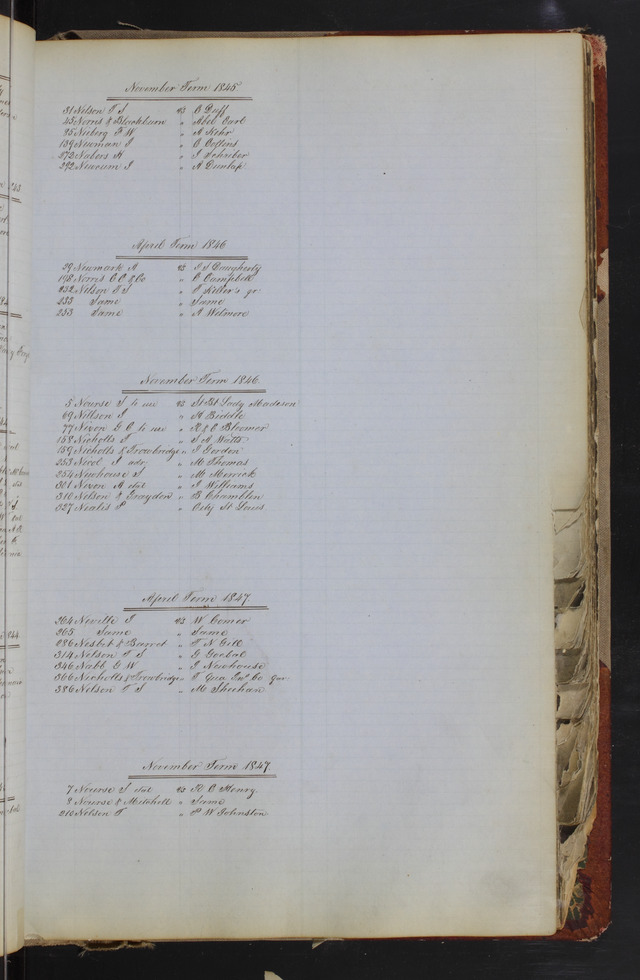 November Term 1845
31 Nelson T S vs B Duff
43 Norris & Blackburn " Abel Carl
95 Nieberg F W " A Kehr
139 Newman I " B Collins
272 Nabers H " I Schriber
292 Newrum I " A Dunlap
April Term 1846
29 Newmark A vs I S Daugherty
198 Norris C C & Co " C Campbell
232 Nelson T S " T Keller's gr
233 Same " Same
253 Same " A Wilmore
November Term 1846
5 Nourse S to use vs St Bt Lady Madison
69 Nillson I " H Biddle
77 Nixon G C to use " R & C Bloomer
158 Nicholls T " S A Watts
159 Nicholls & Trowbridge " I Gordon
253 Nicol I adr " M Thomas
254 Newhouse S " M Merrick
301 Nixon A etal " I Williams
310 Nelson & Graydon " B Chamblin
327 Neales P " City St Louis
April Term 1847
264 Neville I vs W Comer
265 Same " Same
286 Nesbet & Barret " T N Gill
314 Nelson T S " G Gorbal
346 Nabb G W " I Newhouse
366 Nicholls & Trowbridge " T Gua Ins Co Gar
386 Nelson T S " M Sheehan
November Term 1847
7 Nourse S etal vs R C Henry
8 Nourse & Mitchell " Same
210 Nelson T " P W Johnston